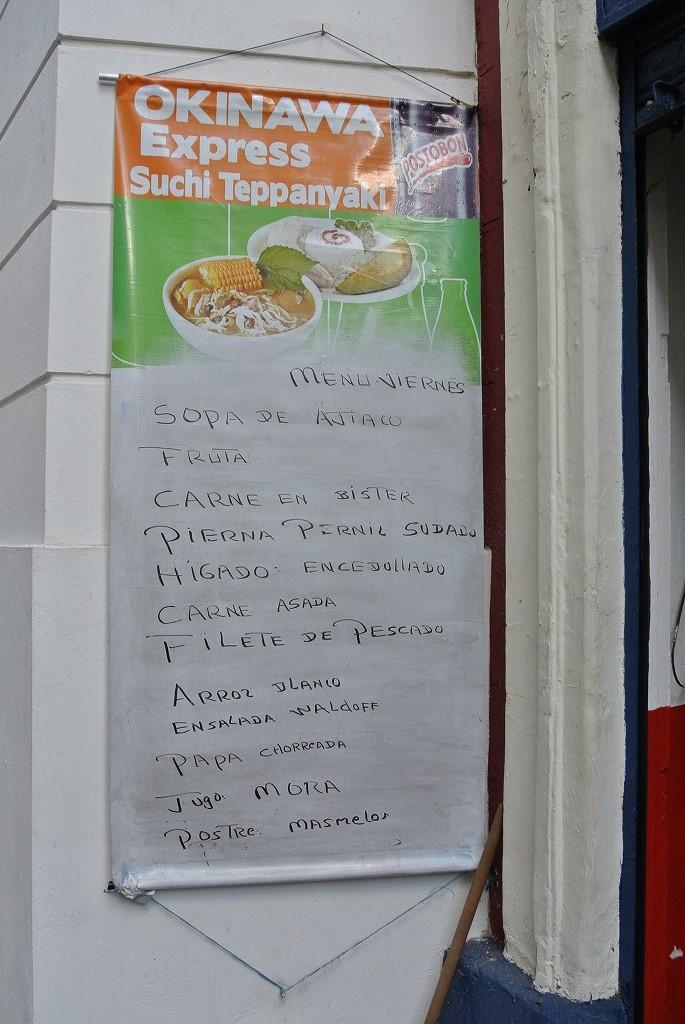 OKINAWA
Express
Suchi Teppanyaki
POSTOBON
MENU VIERNES
SOPA DE AJIACO
FRUTA
CARNE EN BISTER
PIERNA PERNIL SUDADO
HIGADO: ENCEBOLLADO
CARNE ASADA
FILETE DE PESCADO
ARROZ BLANCO
ENSALADA WALDOFF
PAPA CHORREADA
Jugo: MORA
POSTRE: MASMELOS